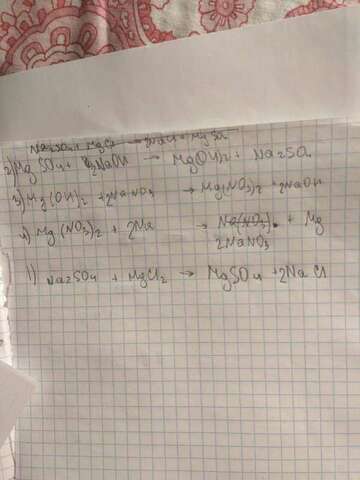 Na2SO4 + MgCl
2) MgSO4 + 2NaOH → Mg(OH)2 + Na2SO4
3) Mg(OH)2 + 2NaNO3 → Mg(NO3)2 + 2NaOH
4) Mg(NO3)2 + 2Na → Na(NO3) + Mg
2NaNO3
1) Na2SO4 + MgCl2 → MgSO4 + 2NaCl